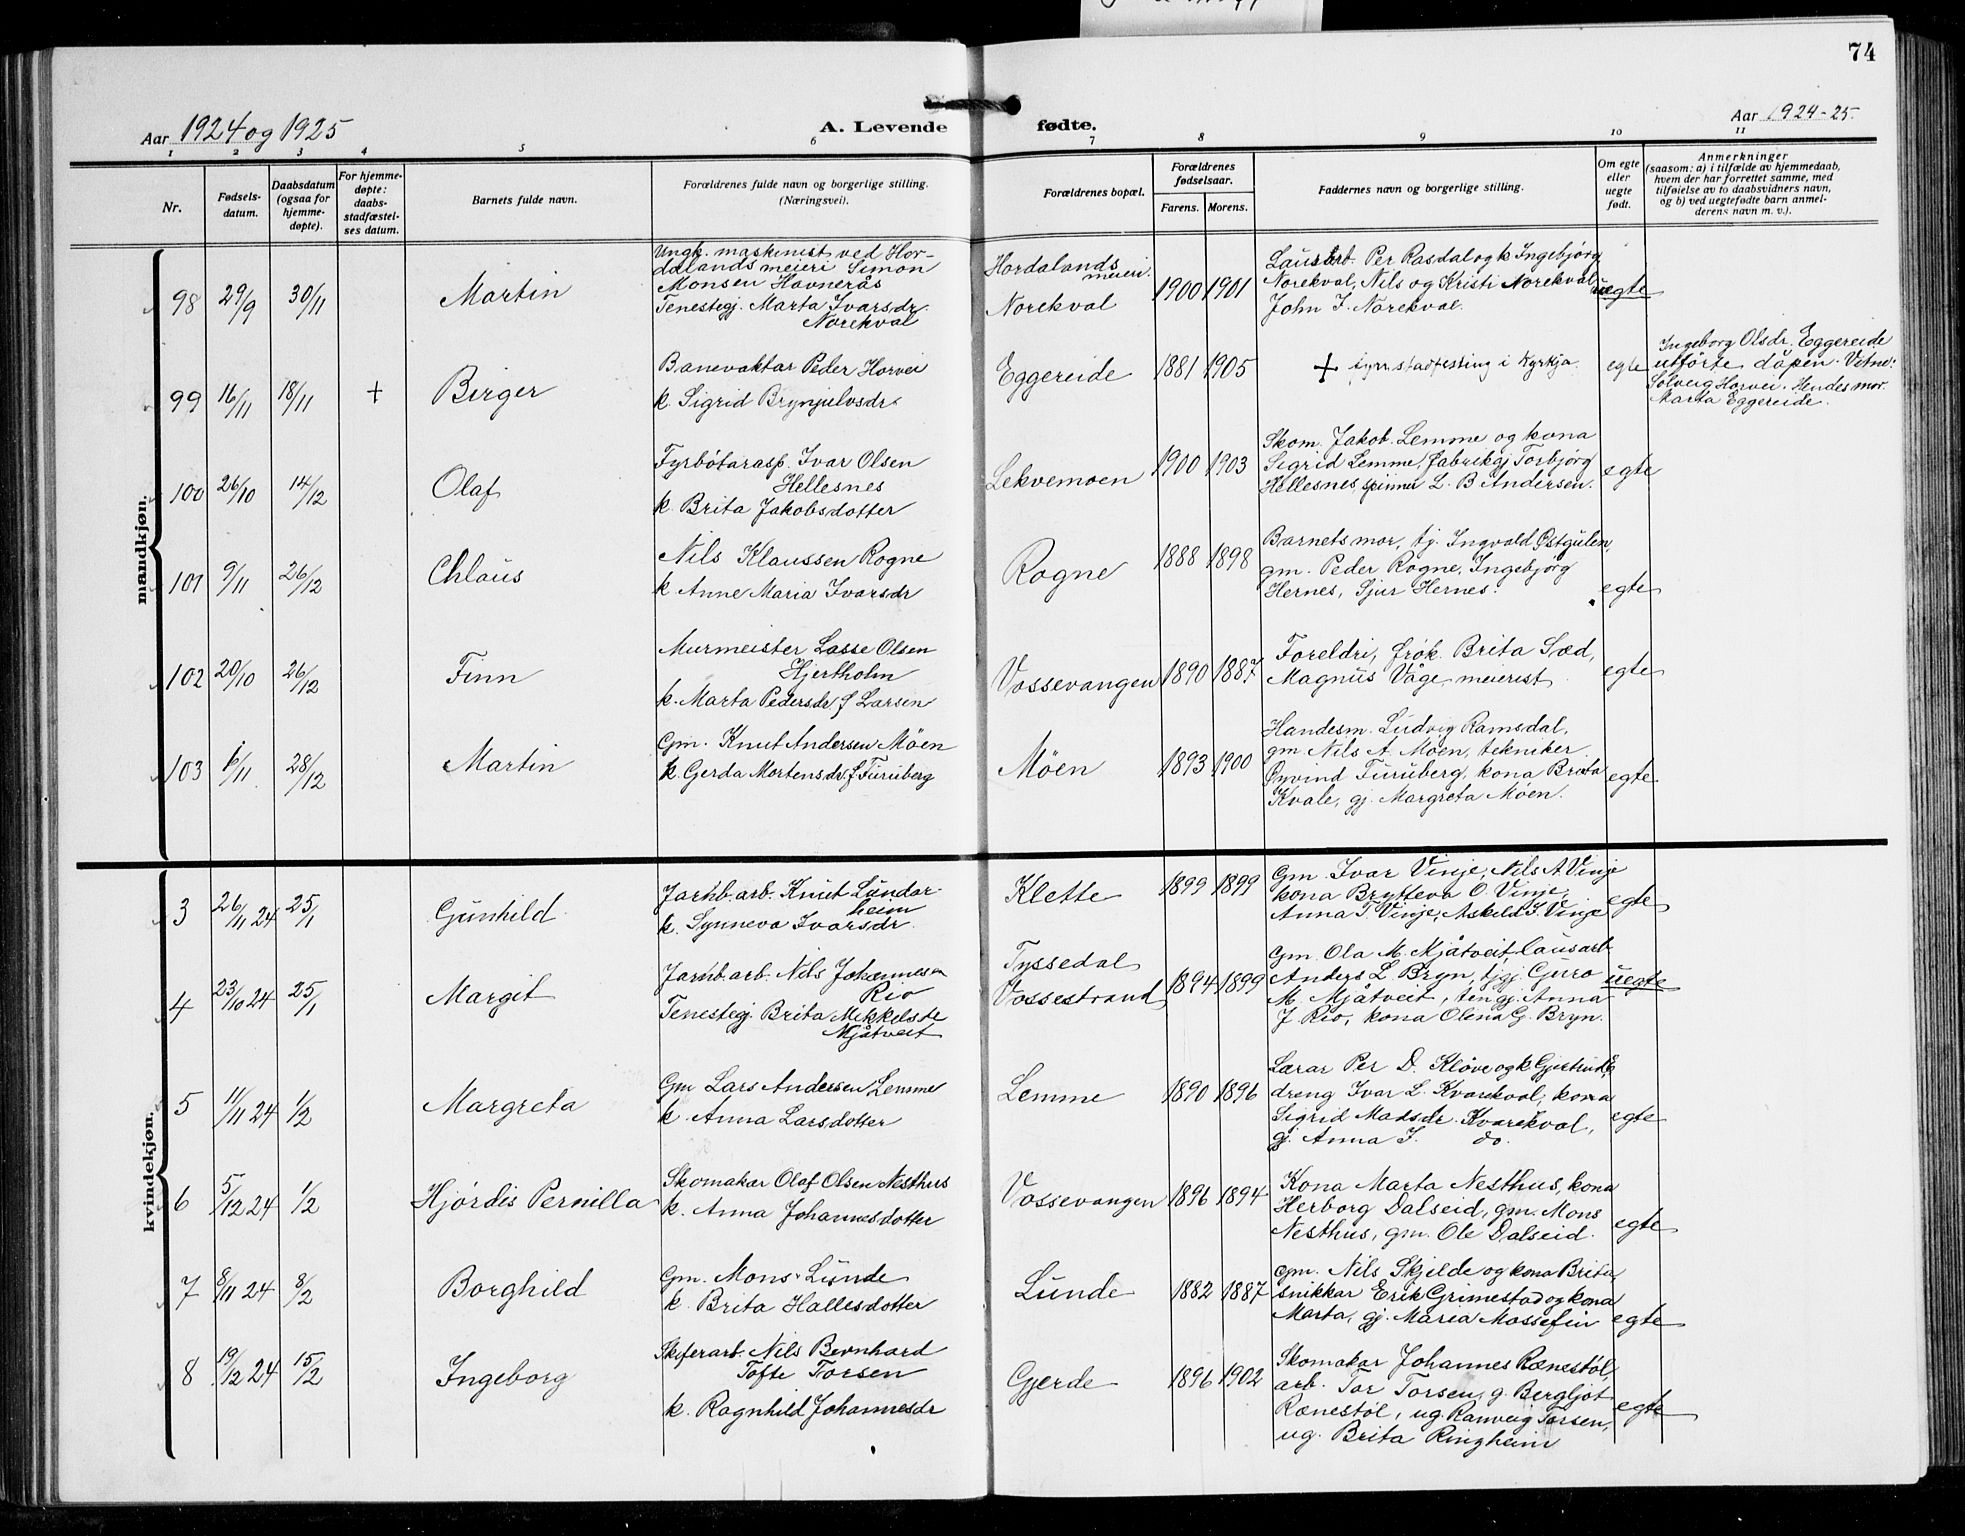 74
Aar 1924 og 1925
A. Levende fødte.
Aar 1924-25.
1 2 3 4 5 6 7 8 9 10 11
Nr.
Fødsels-
datum.
Daabsdatum
(ogsaa for
hjemme-
døpte).
For hjemme-
døpte:
daabs-
stadfæstel-
ses datum.
Barnets fulde navn.
Forældrenes fulde navn og borgerlige stilling.
(Næringsvei).
Forældrenes bopæl.
Forældrenes
fødselsaar.
Farens. Morens.
Faddernes navn og borgerlige stilling.
Om egte
eller
uegte
født.
Anmerkninger
(saasom: a) i tilfælde av hjemmedaab,
hvem der har forrettet samme, med
tilføielse av to daabsvidners navn,
og b) ved uegtefødte barn anmel-
derens navn m. v.).
mandkjøn.
98 29/9 30/11 Martin
Ungk. maskinist ved Hor-
dalands meieri Simon
Monsen Havnerås
Tenestegj. Marta Ivarsdr.
Norekval
Hordalands
meieri.
Norekval
1900 1901
Per Rasdal og k Ingebjørg
Norekval, Nils og Kristi Norekval
John I. Norekval.
uegte
99 16/11 18/11 + Birger
Banevaktar Peder Horvei
k. Sigrid Brynjulvsdr.
Eggereide
1881 1905
+ stadfesting i Kyrkja.
egte
Ingeborg Olsdr. Eggereide
utførte dåpen. Vitne:
Solveig Horvei. Hendes mor
Marta Eggereide.
100 26/10 14/12 Olaf
Fyrbøtarasp. Ivar Olsen
Hellesnes
k. Brita Jakobsdotter
Lekvemoen
1900 1903
Skom. Jakob Lemme og kona
Sigrid Lemme, fabrikgj Torbjørg
Hellesnes, spinner L. B Andersen.
egte
101 9/11 26/12 Chlaus
Nils Klaussen Rogne
k Anne Maria Ivarsdr
Rogne
1888 1898
Barnets mor, tj. Ingvald Østgulen,
gm. Peder Rogne, Ingebjørg
Hernes, Sjur Hernes.
egte
102 20/10 26/12 Finn
Murmeister Lasse Olsen
Hjertholm
k. Marta Pedersdr f Larsen
Vossevangen
1890 1887
Foreldri, frøk. Brita Sæd,
Magnus Våge, meierist
egte
103 /11 28/12 Martin
Gm. Knut Andersen Møen
k. Gerda Mortensdr f Furuberg
Møen
1893 1900
Handesm. Ludvig Ramsdal,
gm. Nils A. Møen, tekniker
Øyvind Furuberg, kona Brita
Kvale, gj. Margreta Møen.
egte.
kvindekjøn.
3 26/11 24 25/1 Gunhild
Jarnb. arb. Knut Lundar-
heim
k. Synneva Ivarsdr.
Klette
1899 1899
Gm. Ivar Vinje, Nils A Vinje
kona Brytteva O. Vinje,
Anna T Vinje, Askild I. Vinje
egte
4 23/10 24 25/1 Margit
Jarnb. arb. Nils Johannesen
Rio
Tenestegj. Brita Mikkelsdr
Mjåtveit
Tyssedal
Vossestrand
1894 1899
Gm. Ola M. Mjåtveit, lausarb
Anders L Bryn, tjgj. Guro
M. Mjåtveit, tengj. Anna
J Rio, kona Olena G. Bryn.
uegte
5 11/11 24 1/2 Margreta
Gm Lars Andersen Lemme
k. Anna Larsdotter
Lemme
1890 1896
Lærar Per D. Kløve og k Gjertrud,
dreng Ivar L. Kvarekval, kona
Sigrid Madsdr. Kvarekval,
gj. Anna I. do.
egte
6 5/12 24 1/2 Hjørdis Pernilla
Skomakar Olaf Olsen Nesthus
k. Anna Johannesdotter
Vossevangen
1896 1894
Kona Marta Nesthus, kona
Herborg Dalseid, gm. Mons
Nesthus, gm. Ole Dalseid.
egte
7 8/11 24 8/2 Borghild
Gm. Mons Lunde
k. Brita Hallesdotter
Lunde
1882 1887
Gm. Nils Skjelde og kona Brita,
snikkar Erik Grimestad og kona
Marta, gj. Maria Mossefin
egte
8 19/12 24 15/2 Ingeborg
Skiferarb. Nils Bernhard
Tofte Torsen
k. Ragnhild Johannesdr
Gjerde
1896 1902
Skomakar Johannes Rænestøl,
arb. Tor Torsen, g. Bergljot
Rænestøl, ug. Ranveig Torsen,
ug. Brita Ringheim
egte